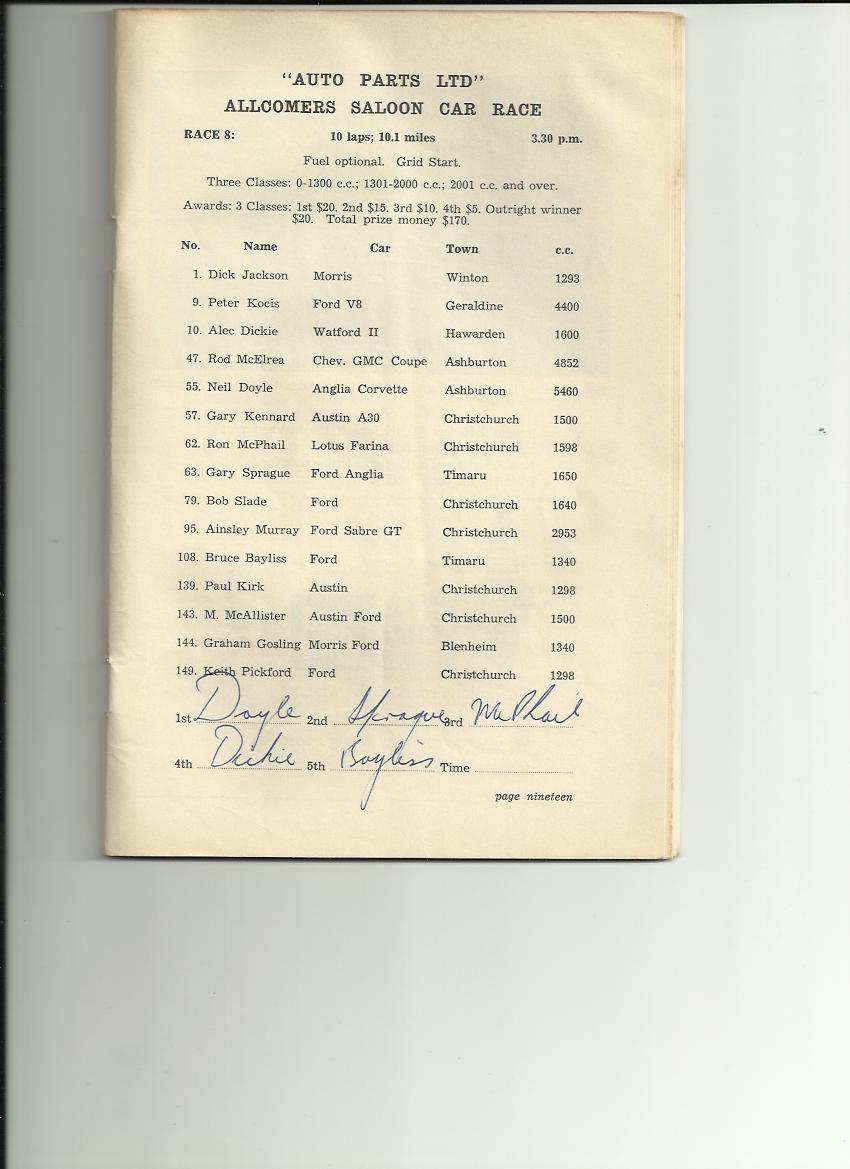 "AUTO PARTS LTD"
ALLCOMERS SALOON CAR RACE
RACE 8: 10 laps; 10.1 miles 3.30 p.m.
Fuel optional. Grid Start.
Three Classes: 0-1300 c.c.; 1301-2000 c.c.; 2001 c.c. and over.
Awards: 3 Classes: 1st $20. 2nd $15. 3rd $10. 4th $5. Outright winner
$20. Total prize money $170.
No. Name Car Town c.c.
1. Dick Jackson Morris Winton 1293
9. Peter Kocis Ford V8 Geraldine 4400
10. Alec Dickie Watford II Hawarden 1600
47. Rod McElrea Chev. GMC Coupe Ashburton 4852
55. Neil Doyle Anglia Corvette Ashburton 5460
57. Gary Kennard Austin A30 Christchurch 1500
62. Ron McPhail Lotus Farina Christchurch 1598
63. Gary Sprague Ford Anglia Timaru 1650
79. Bob Slade Ford Christchurch 1640
95. Ainsley Murray Ford Sabre GT Christchurch 2953
108. Bruce Bayliss Ford Timaru 1340
139. Paul Kirk Austin Christchurch 1298
143. M. McAllister Austin Ford Christchurch 1500
144. Graham Gosling Morris Ford Blenheim 1340
149. Keith Pickford Ford Christchurch 1298
1st Doyle 2nd Sprague 3rd McPhail
4th Dickie 5th Bayliss Time
page nineteen